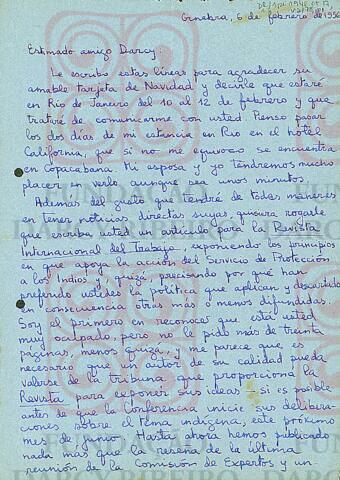 Ginebra, 6 de febrero de 1956
Estimado amigo Darcy:
Le escribo estas líneas para agradecer su
amable tarjeta de Navidad y decirle que estaré
en Río de Janeiro del 10 al 12 de febrero y que
trataré de comunicarme con usted. Pienso pasar
los dos días de mi estancia en Río en el hotel
California, que si no me equivoco se encuentra
en Copacabana. Mi esposa y yo tendremos mucho
placer en verlo aunque sea unos minutos.
Además del gusto que tendré de todas maneras
en tener noticias directas suyas, quisiera rogarle
que escriba usted un artículo para la Revista
Internacional del Trabajo, exponiendo los principios
en que apoya la acción del Servicio de Protección
a los Indios y, quizá, precisando por qué han
preferido ustedes la política que aplican y descartado
en consecuencia otras más o menos difundidas.
Soy el primero en reconocer que está usted
muy ocupado, pero no le pido más de treinta
páginas, menos quizá, y me parece que es
necesario que un autor de su calidad pueda
valerse de la tribuna que proporciona la
Revista para exponer sus ideas - si es posible
antes de que la Conferencia inicie sus delibera-
ciones sobre el tema indígena, este próximo
mes de junio. Hasta ahora hemos publicado
nada más que la reseña de la última
reunión de la Comisión de Expertos y un-
FUNDAÇÃO
DARCY RIBEIRO